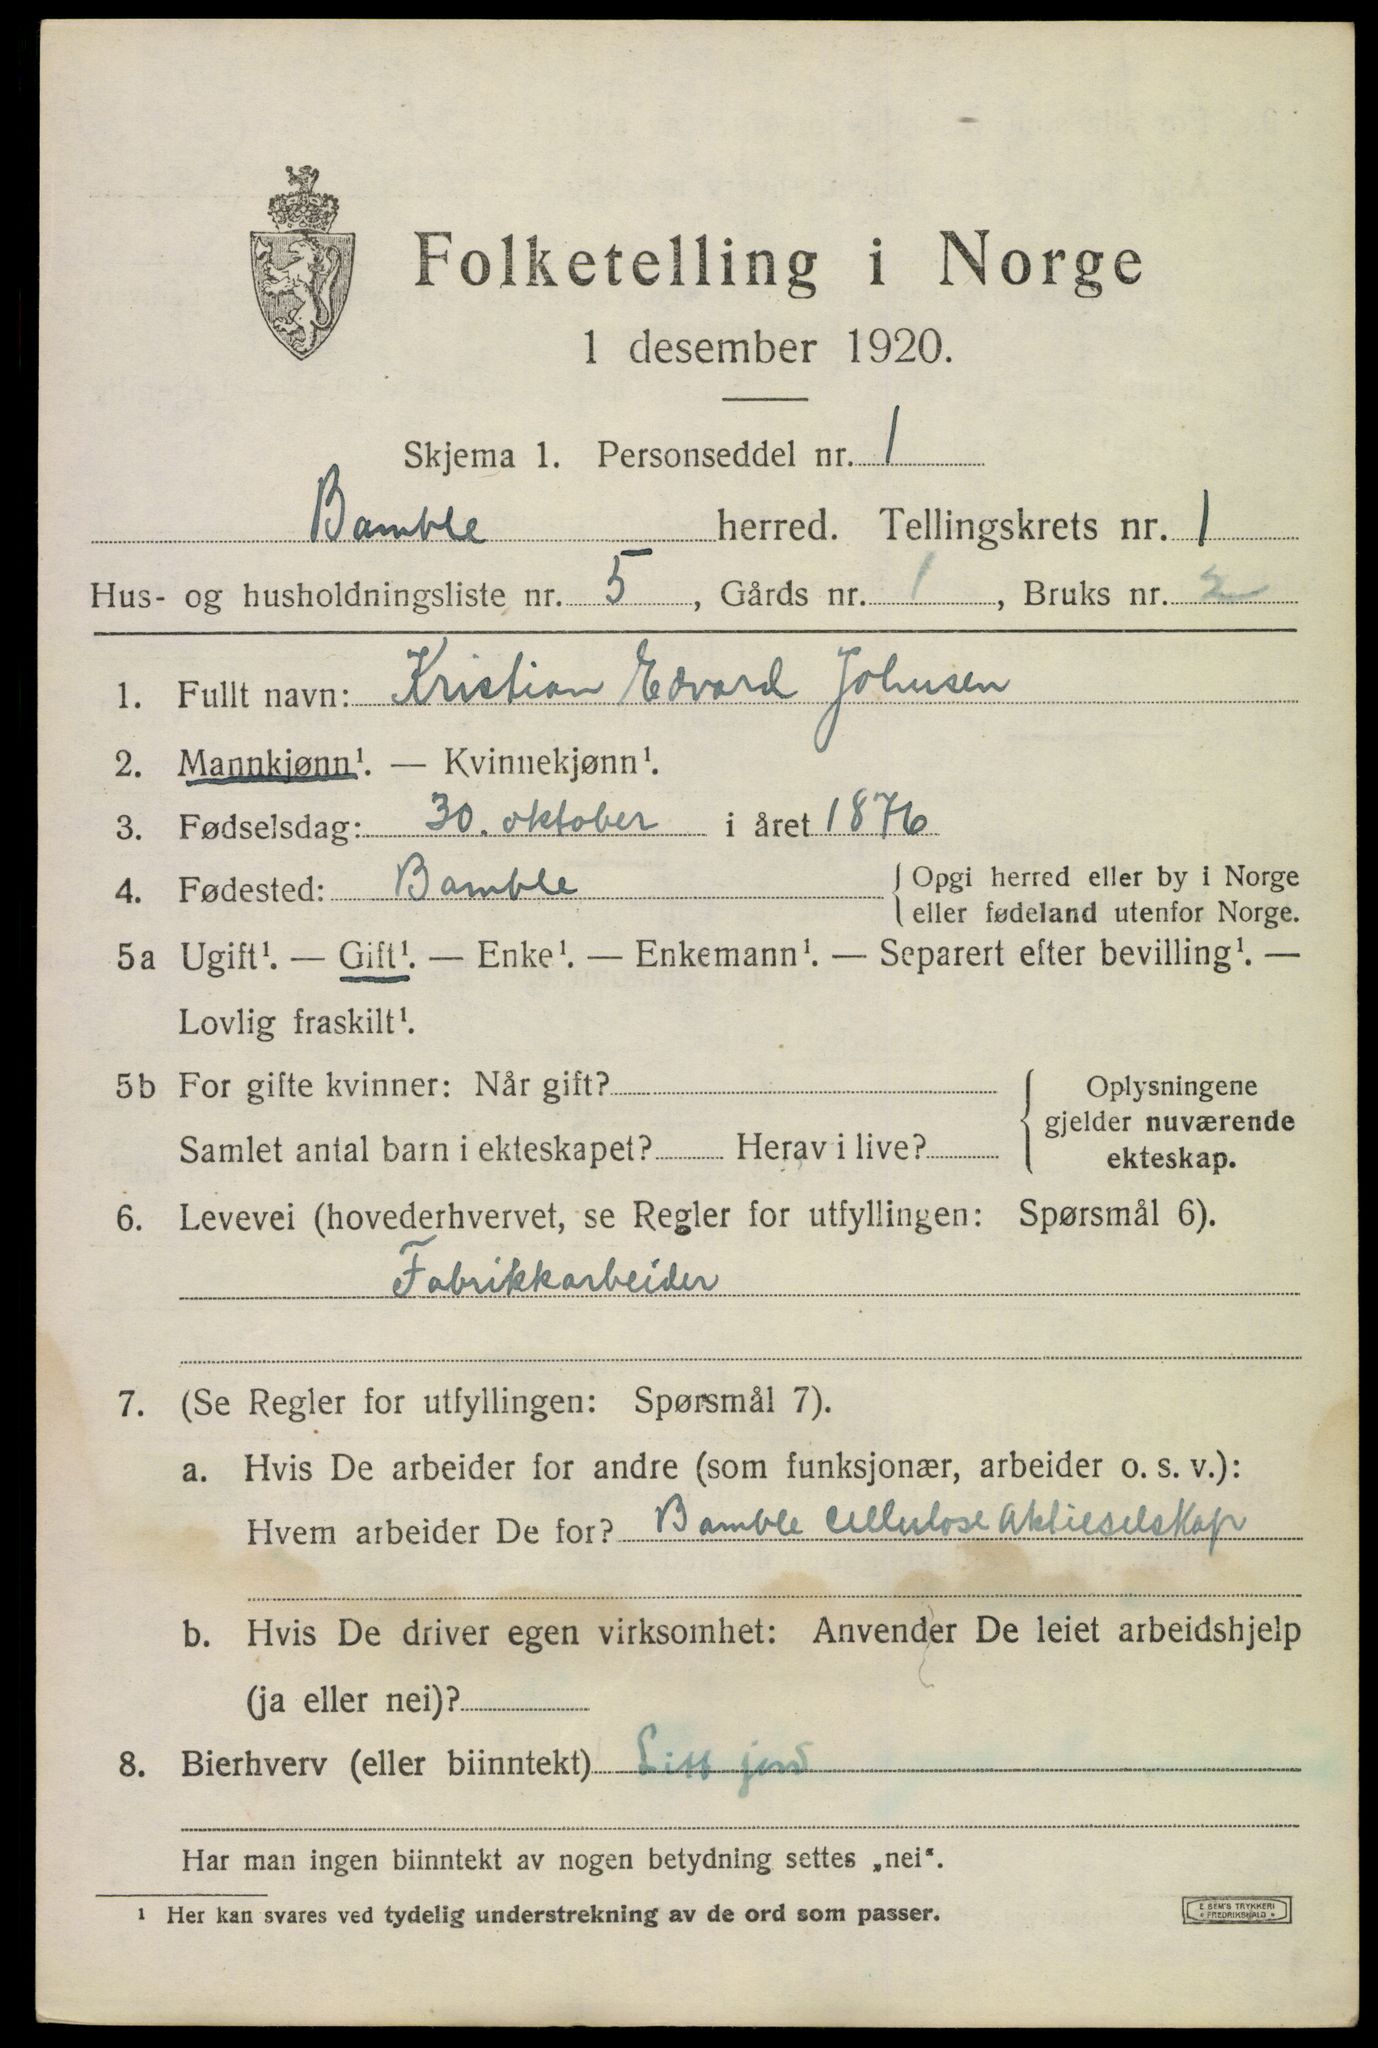 Folketelling i Norge
1 desember 1920.
Skjema 1. Personseddel nr. 1
Bamble herred. Tellingskrets nr. 1
Hus- og husholdningsliste nr. 5, Gårds nr. 1, Bruks nr. 2
1. Fullt navn: Kristian Edvard Johnsen
2. Mannkjønn¹. — Kvinnekjønn¹.
3. Fødselsdag: 30. oktober i året 1876
4. Fødested: Bamble { Opgi herred eller by i Norge
eller fødeland utenfor Norge.
5a Ugift¹. — Gift¹. — Enke¹. — Enkemann¹. — Separert efter bevilling¹. —
Lovlig fraskilt¹.
5b For gifte kvinner: Når gift? { Oplysningene
gjelder nuværende
Samlet antal barn i ekteskapet? Herav i live? ekteskap.
6. Levevei (hovederhvervet, se Regler for utfyllingen: Spørsmål 6).
Fabrikkarbeider
7. (Se Regler for utfyllingen: Spørsmål 7).
a. Hvis De arbeider for andre (som funksjonær, arbeider o. s. v.):
Hvem arbeider De for? Bamble Cellulose Aktieselskap
b. Hvis De driver egen virksomhet: Anvender De leiet arbeidshjelp
(ja eller nei)?
8. Bierhverv (eller biinntekt) Litt jord
Har man ingen biinntekt av nogen betydning settes „nei“.
¹ Her kan svares ved tydelig understrekning av de ord som passer.
E SEM'S TRYKKERI
• FREDRIKSHALD •